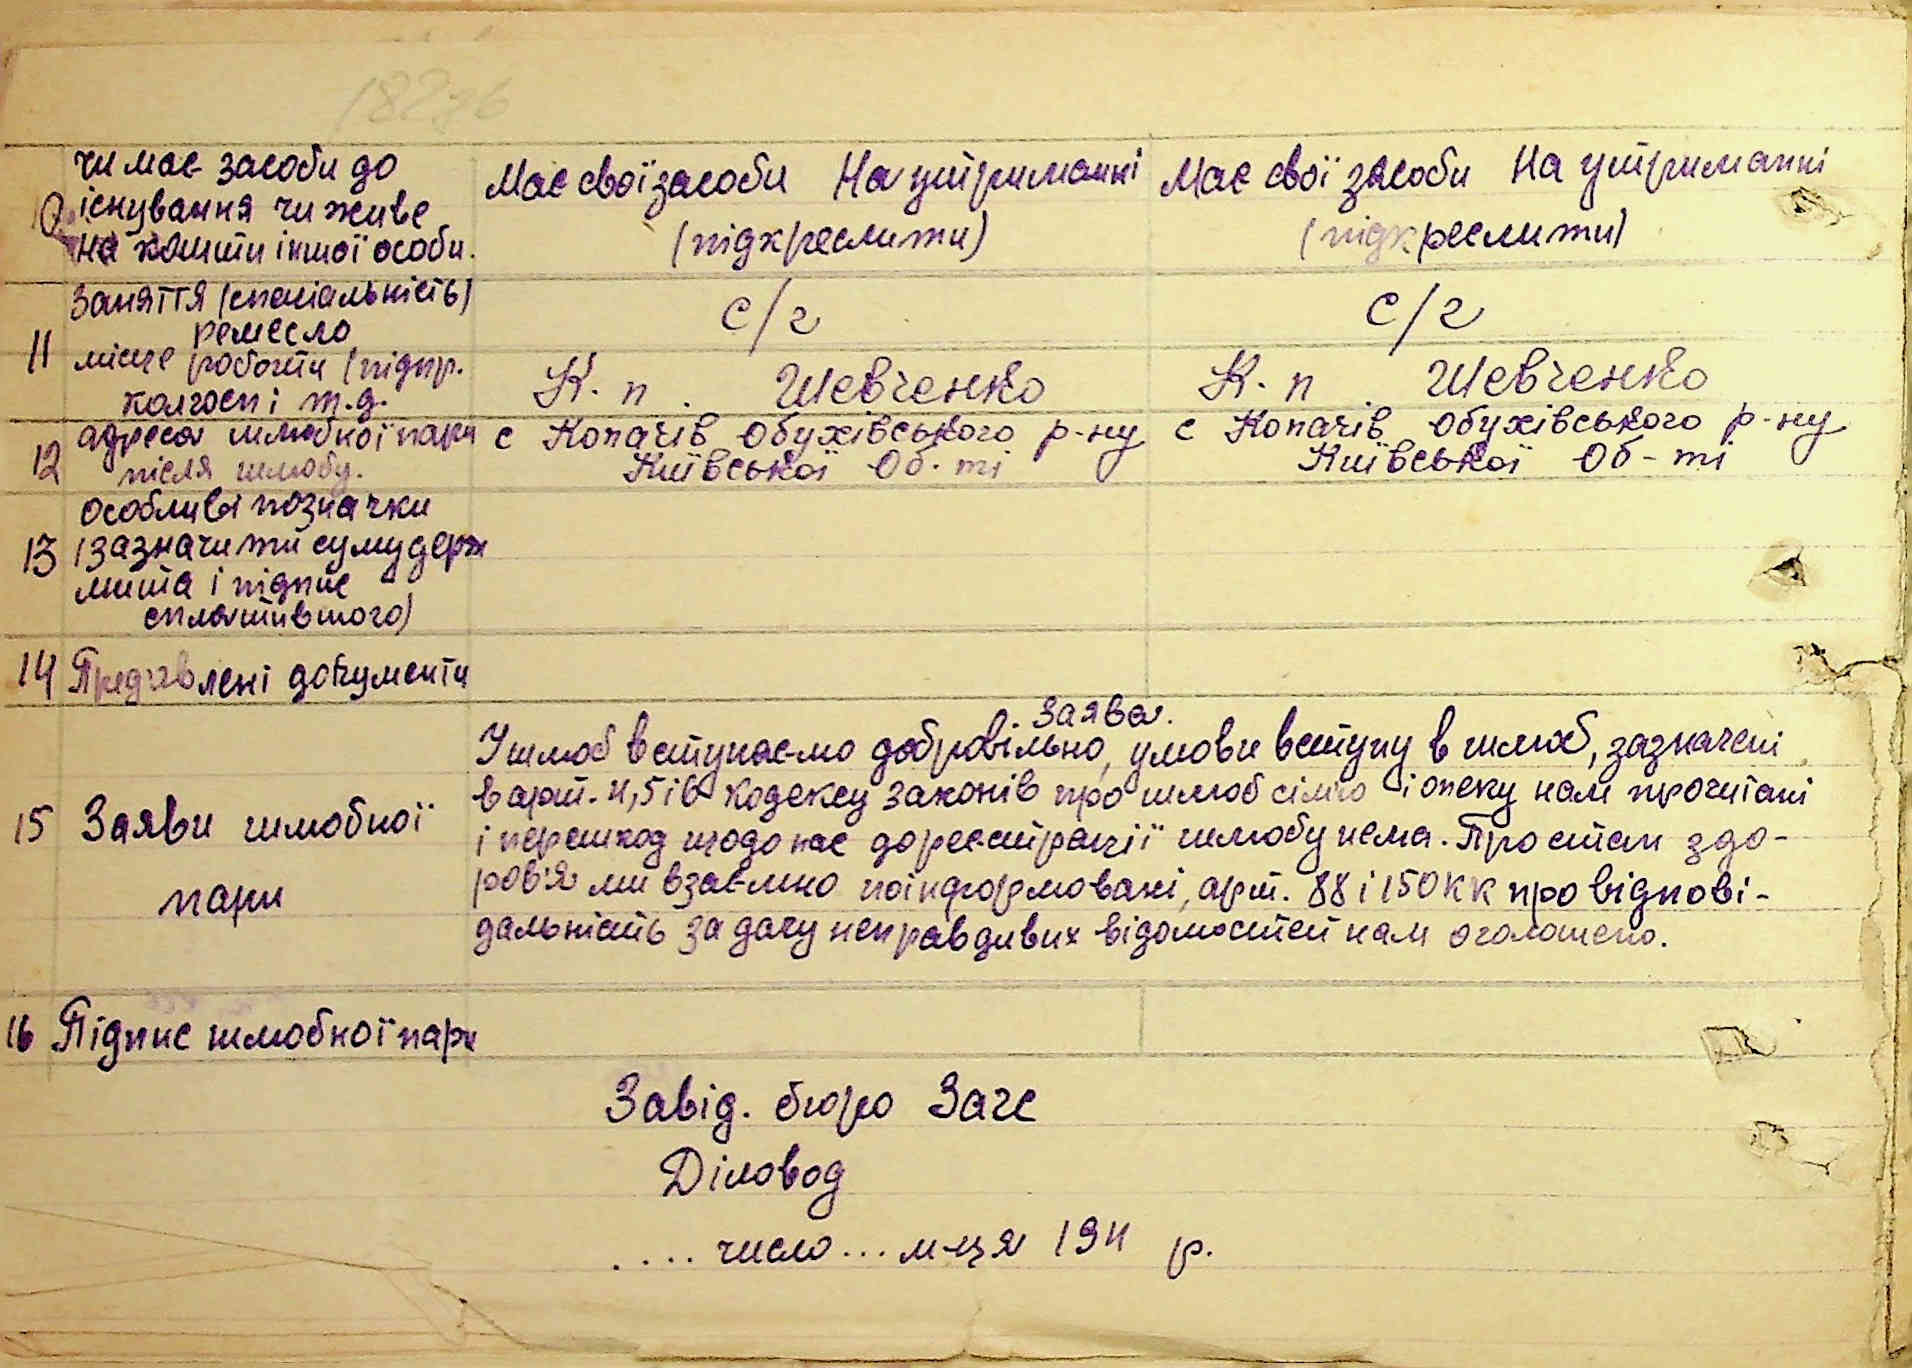 182зв
чи має засоби до
Має свої засоби На утриманні Має свої засоби На утриманні
10. існування чи живе
(підкреслити) (підкреслити)
на кошти іншої особи.
Заняття (спеціальність)
с/г с/г
ремесло
11 місце роботи (підпр.
К. п. Шевченко К. п Шевченко
колгосп і т.д.
адреса шлюбної пари с Копачів Обухівського р-ну с Копачів Обухівського р-ну
12 після шлюбу. Київської Об-ті Київської Об-ті
особливі позначки
13 (зазначити суму держ
мита і підпис
сплатившого)
14 Предявлені документи
Заява.
У шлюб вступаємо добровільно, умови вступу в шлюб, зазначені
в арт. 4, 5 і 6 кодексу законів про шлюб сім'ю і опеку нам прочитані
15 Заяви шлюбної і перешкод щодо нас до реєстрації шлюбу нема. Про стан здо-
пари ров'я ми взаємно поінформовані, арт. 88 і 150 КК про відпові-
дальність за дачу неправдивих відомостей нам оголошено.
16 Підпис шлюбної пари
Завід. бюро Загс
Діловод
.... число ... м-ця 194 р.